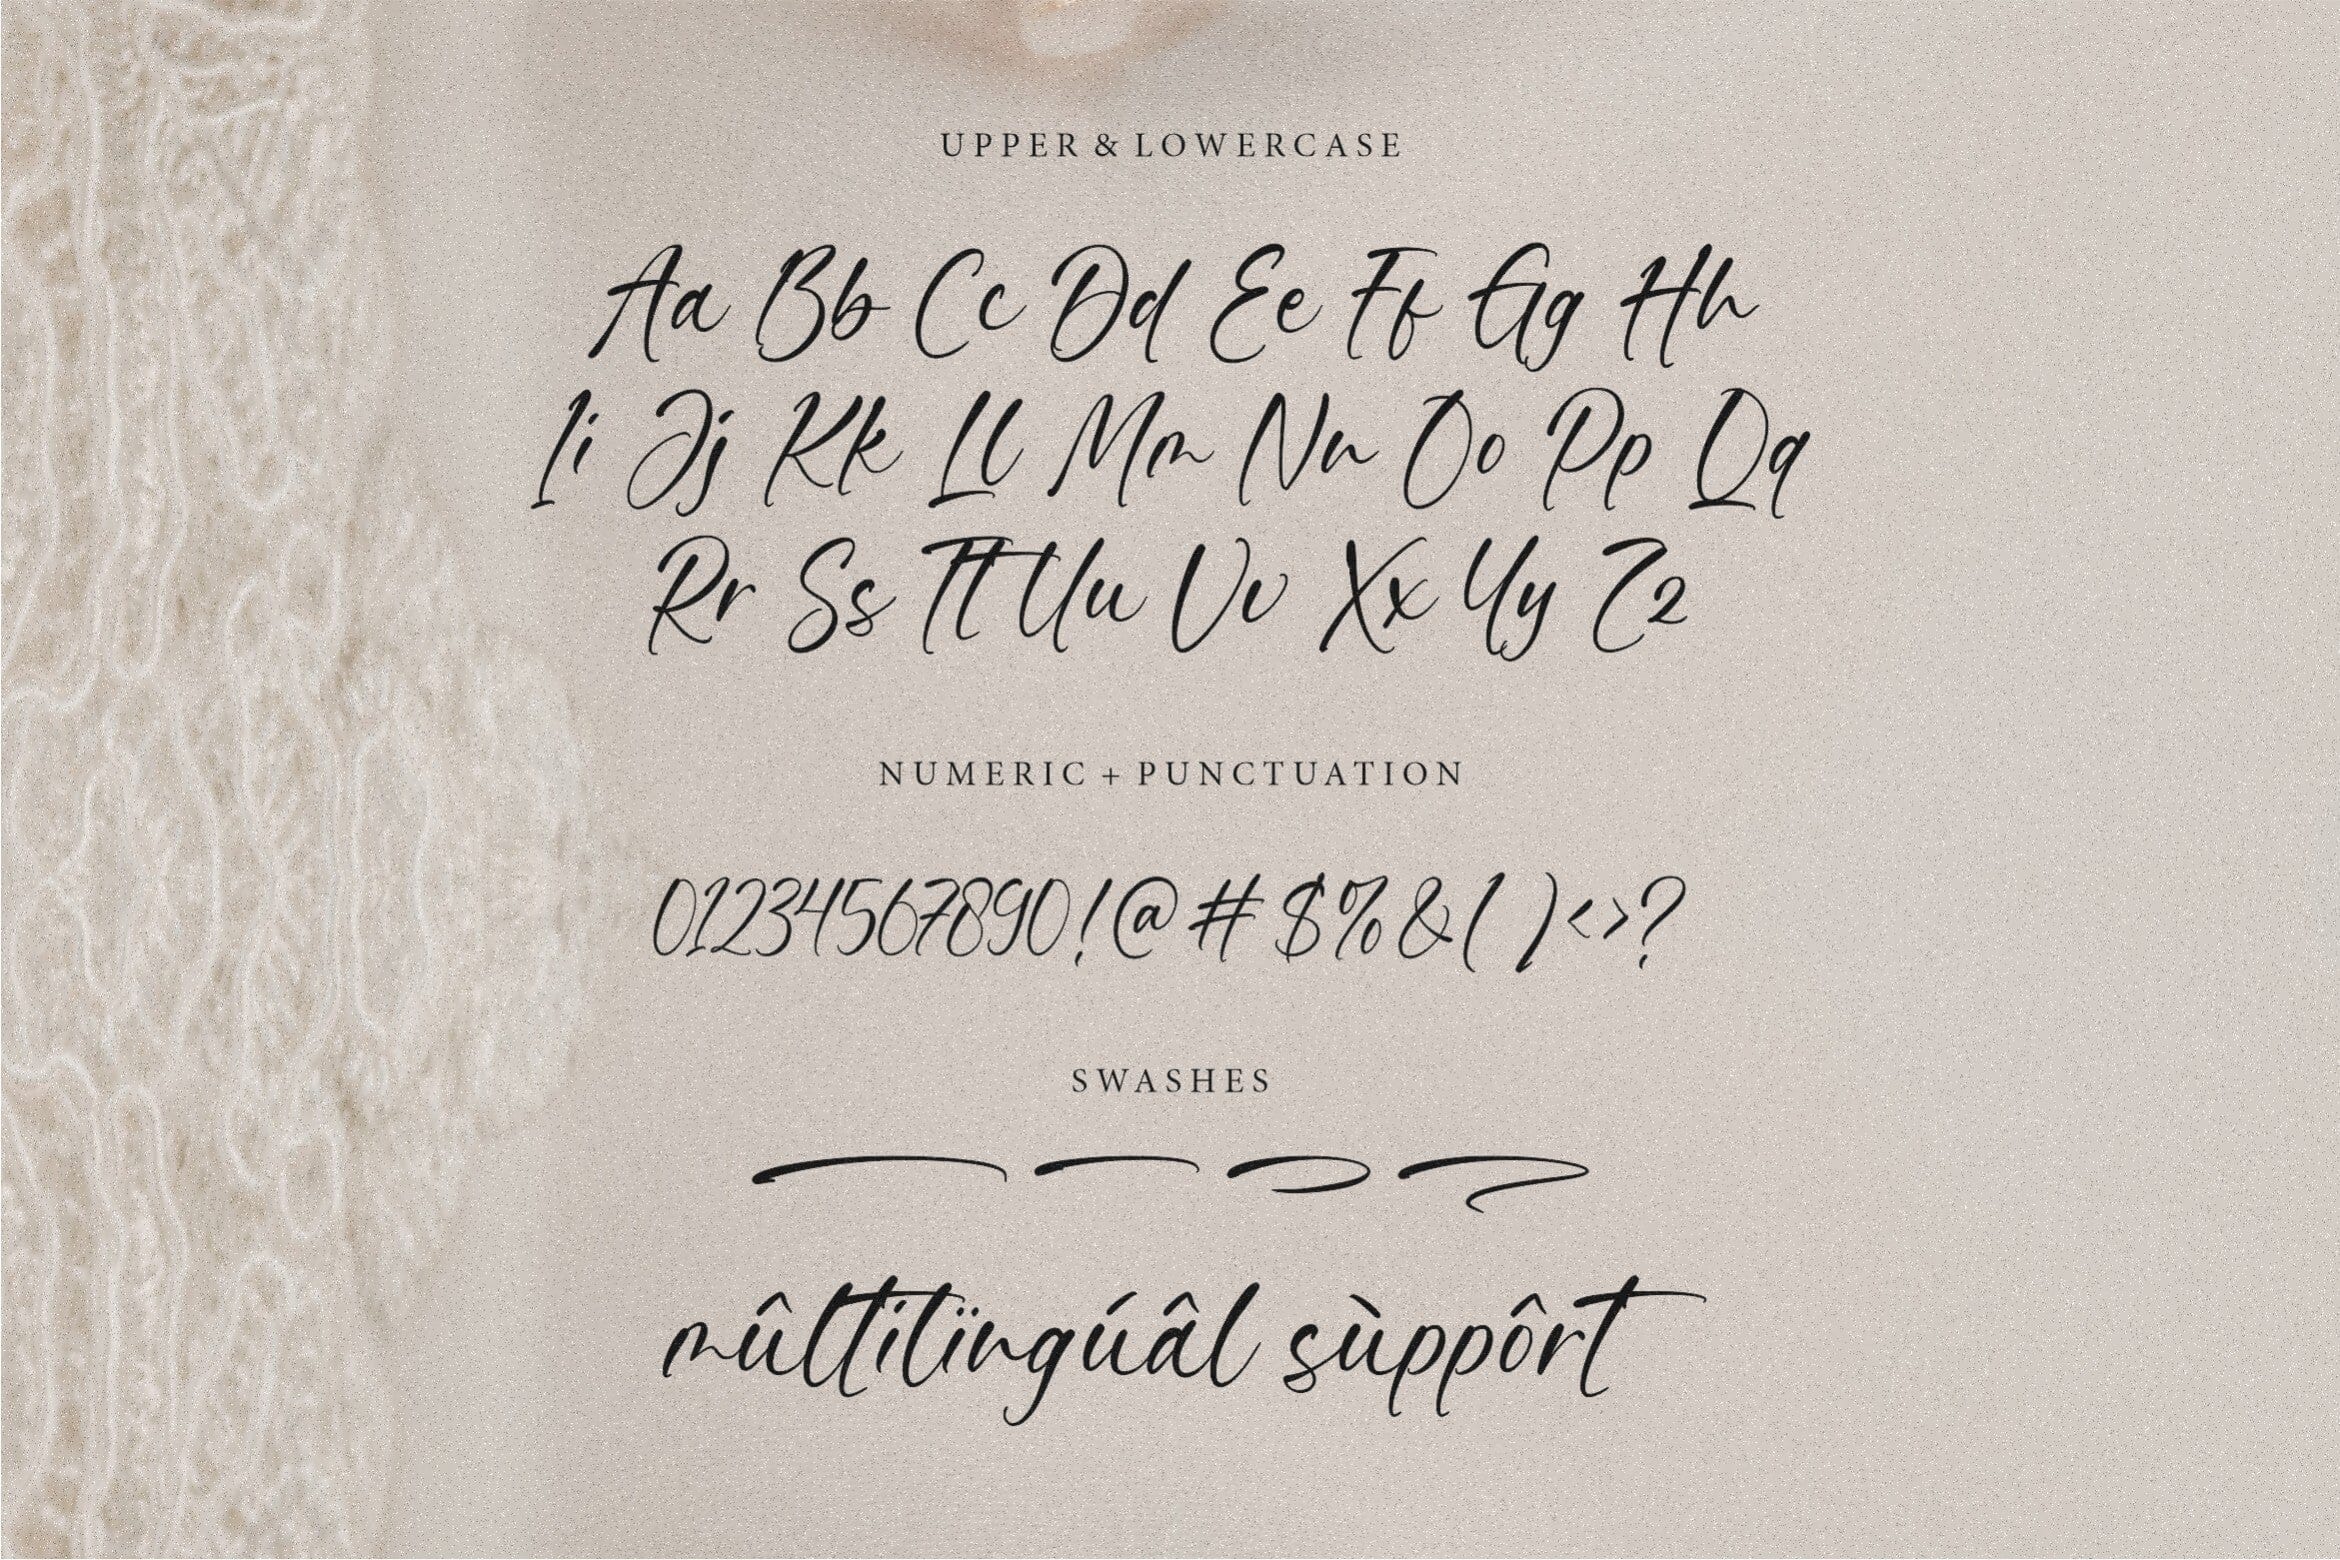 UPPER & LOWERCASE
Aa Bb Cc Dd Ee Ff Gg Hh
Ii Jj Kk Ll Mm Nn Oo Pp Qq
Rr Ss Tt Uu Vv Xx Yy Zz
NUMERIC + PUNCTUATION
01234567890!@#$%&( )<>?
SWASHES
mûltilïngúâl sùppôrt